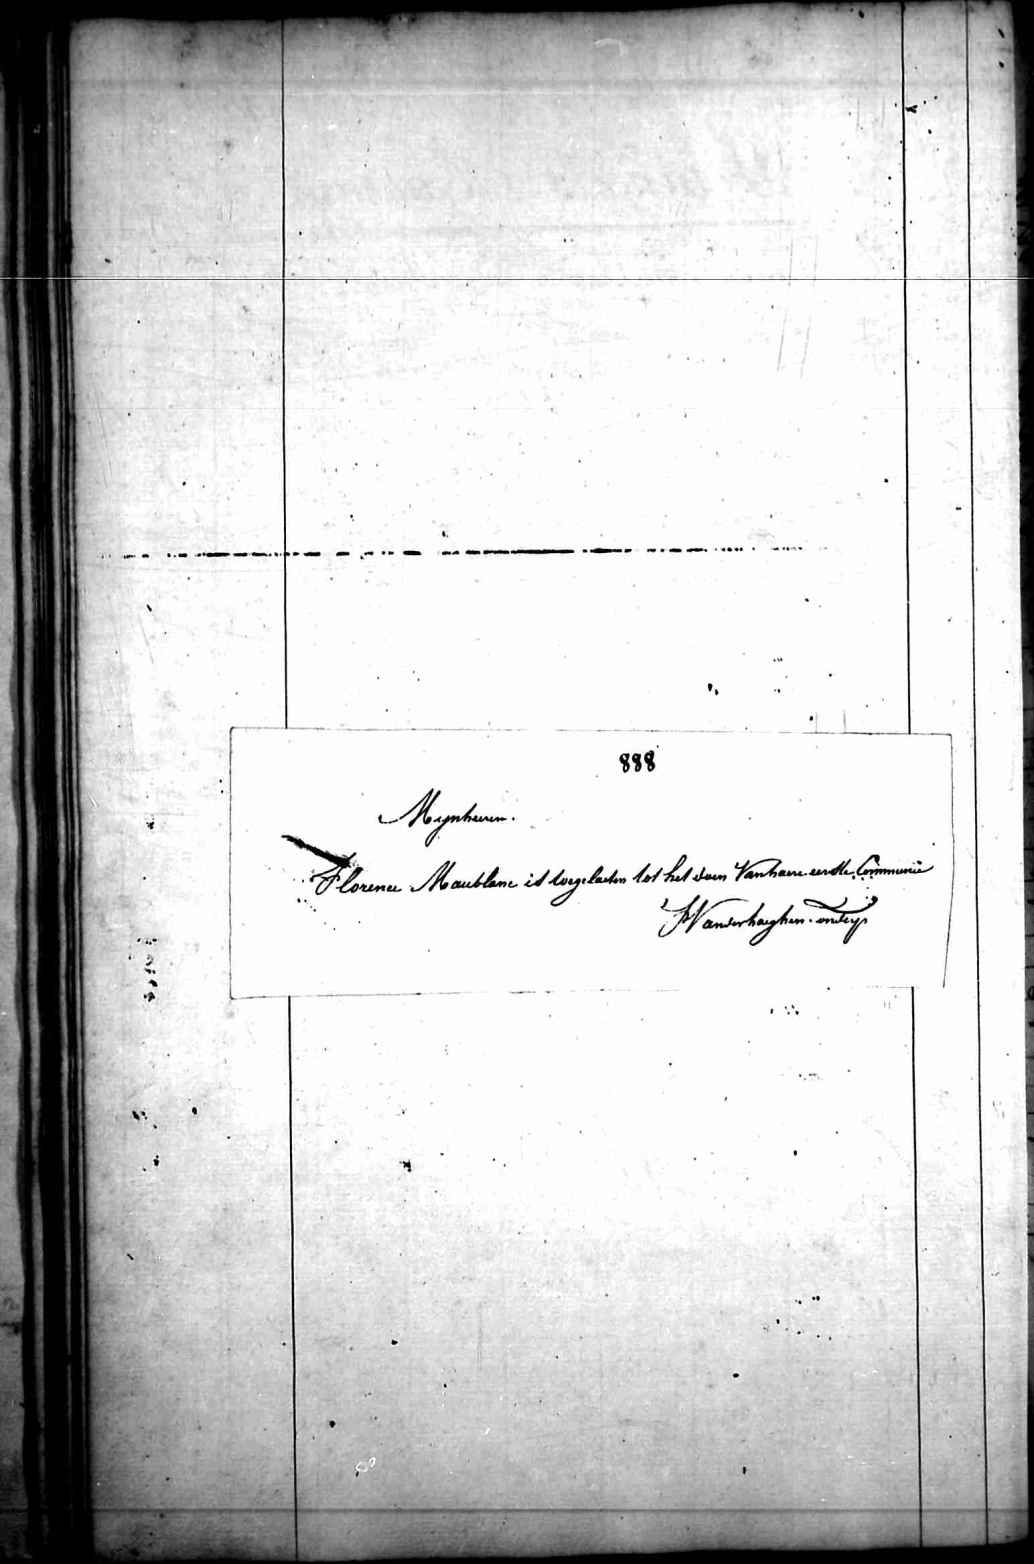 888
Mynheeren.
Florence Maublanc is toegelaeten tot het doen Van haere eerste Communie
Vanderhaeghen